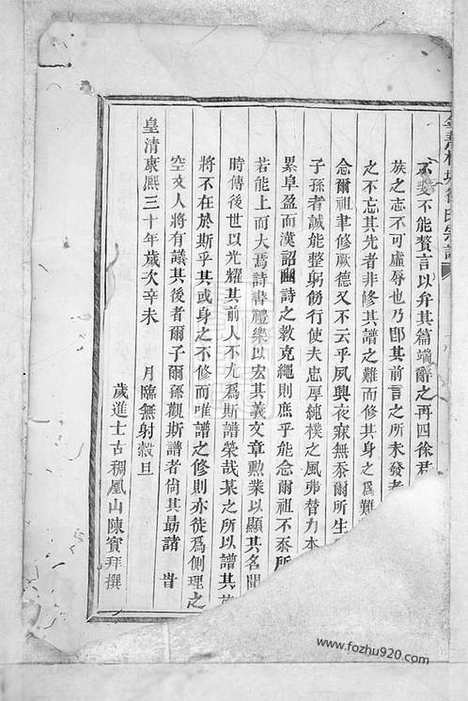 不能贅言以弁其篇端辭之再四徐君
族之不可虛辱也乃即其前言之所未發者
之不忘其先者非修其譜之難而修其身之爲難
念爾祖聿修厥德又不云乎夙興夜寐無忝爾所生
子孫者誠能整躬飭行使夫忠厚純樸之風弗替力本
累阜盈而漢詔豳詩之教克繩則庶乎能念爾祖不忝所
若能上而大焉詩書禮樂以宏其義文章勲業以顯其名聞
時傳後世以光耀其前人不尤爲斯譜榮哉某之所以譜其
將不在於斯乎其或身之不修而唯譜之修則亦徒爲側理之
空文人將有議其後者爾子爾孫觀斯譜者尙其勗諸 旹
皇清康熙三十年歲次辛未 月臨無射穀旦
歲進士古稠鳳山陳賓拜撰
www.fozhu920.com